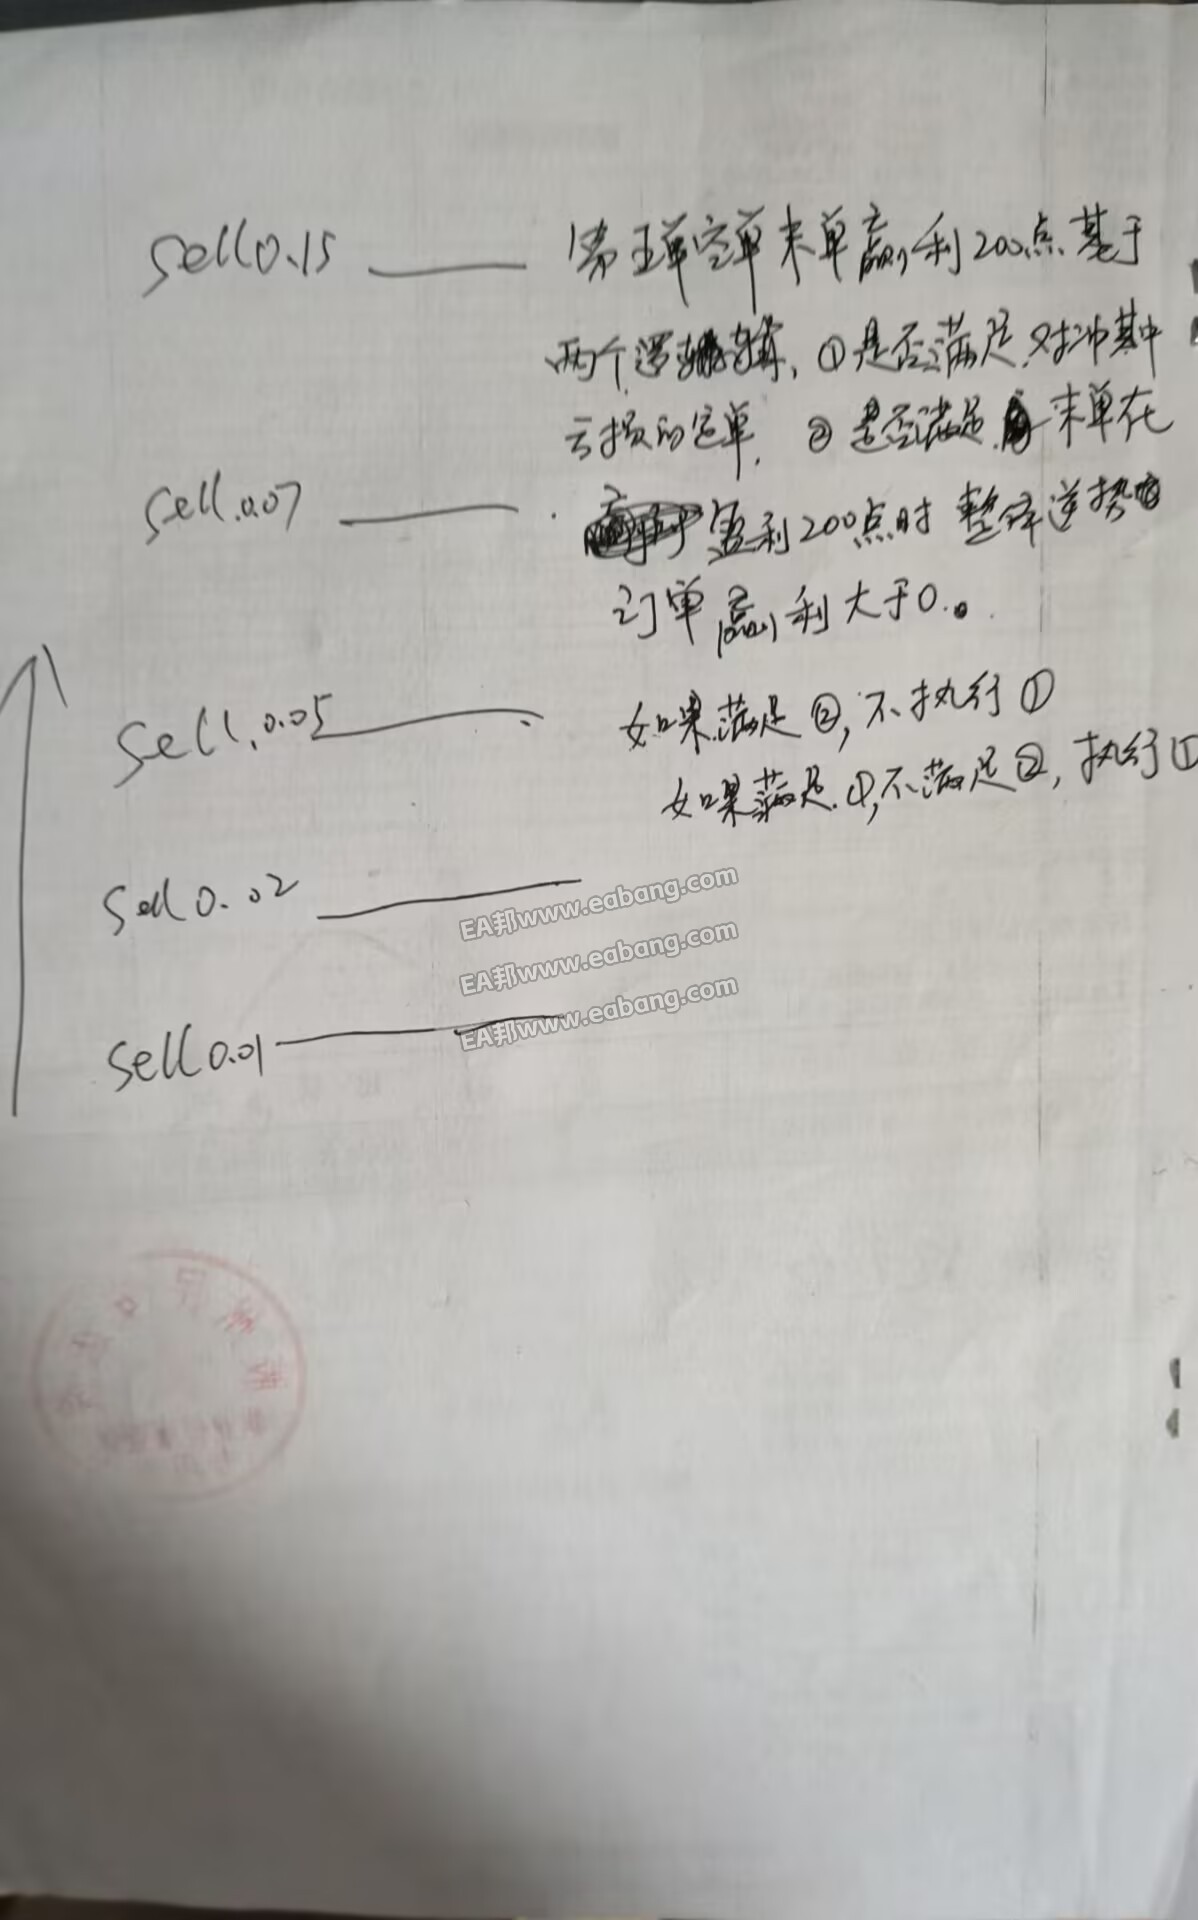 sell 0.15 第五单空单末单赢利200点基于
两个逻辑,①是否满足对冲其中
亏损的定单,②是否满足末单在
sell.0.07 盈利200点时整体逆势
订单赢利大于0.
sell.0.05 如果满足②,不执行①
如果满足.①,不满足②,执行①
sell 0.02
EA邦www.eabang.com
EA邦www.eabang.com
sell 0.01
EA邦www.eabang.com